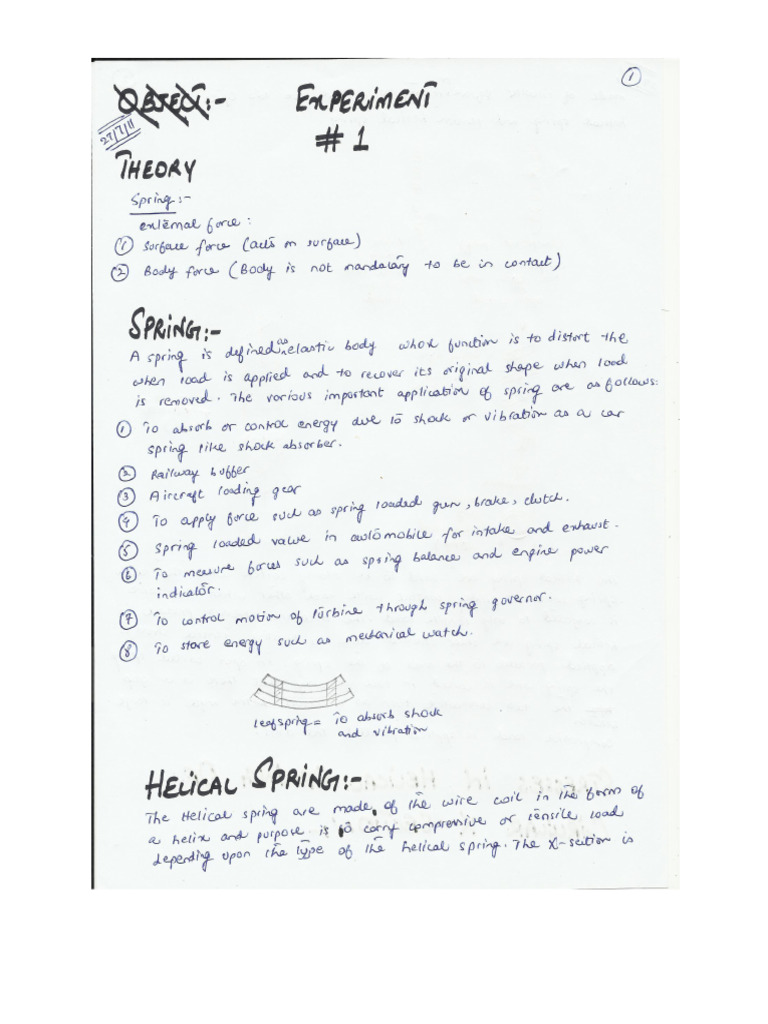 ①
OBJECT:- EXPERIMENT
27/7/11 # 1
THEORY
Spring:-
external force:
① Surface force (acts on surface)
② Body force (Body is not mandatary to be in contact)
SPRING:-
A spring is defined as elastic body whox function is to distort the
when load is applied and to recover its original shape when load
is removed. The various important application of spring are as follows:
① To absorb or control energy due to shock or vibration as a car
spring like shock absorber.
② Railway buffer
③ Aircraft loading gear
④ To apply force such as spring loaded gun, brake, clutch.
⑤ Spring loaded valve in automobile for intake and exhaust.
⑥ To measure forces such as spring balance and engine power
indicator.
⑦ To control motion of turbine through spring governor.
⑧ To store energy such as mechanical watch.
leafspring = To absorb shock
and vibration
HELICAL SPRING:-
The Helical spring are made of the wire coil in the form of
a helix and purpose is to carry compressive or tensile load
depending upon the type of the helical spring. The X-section is